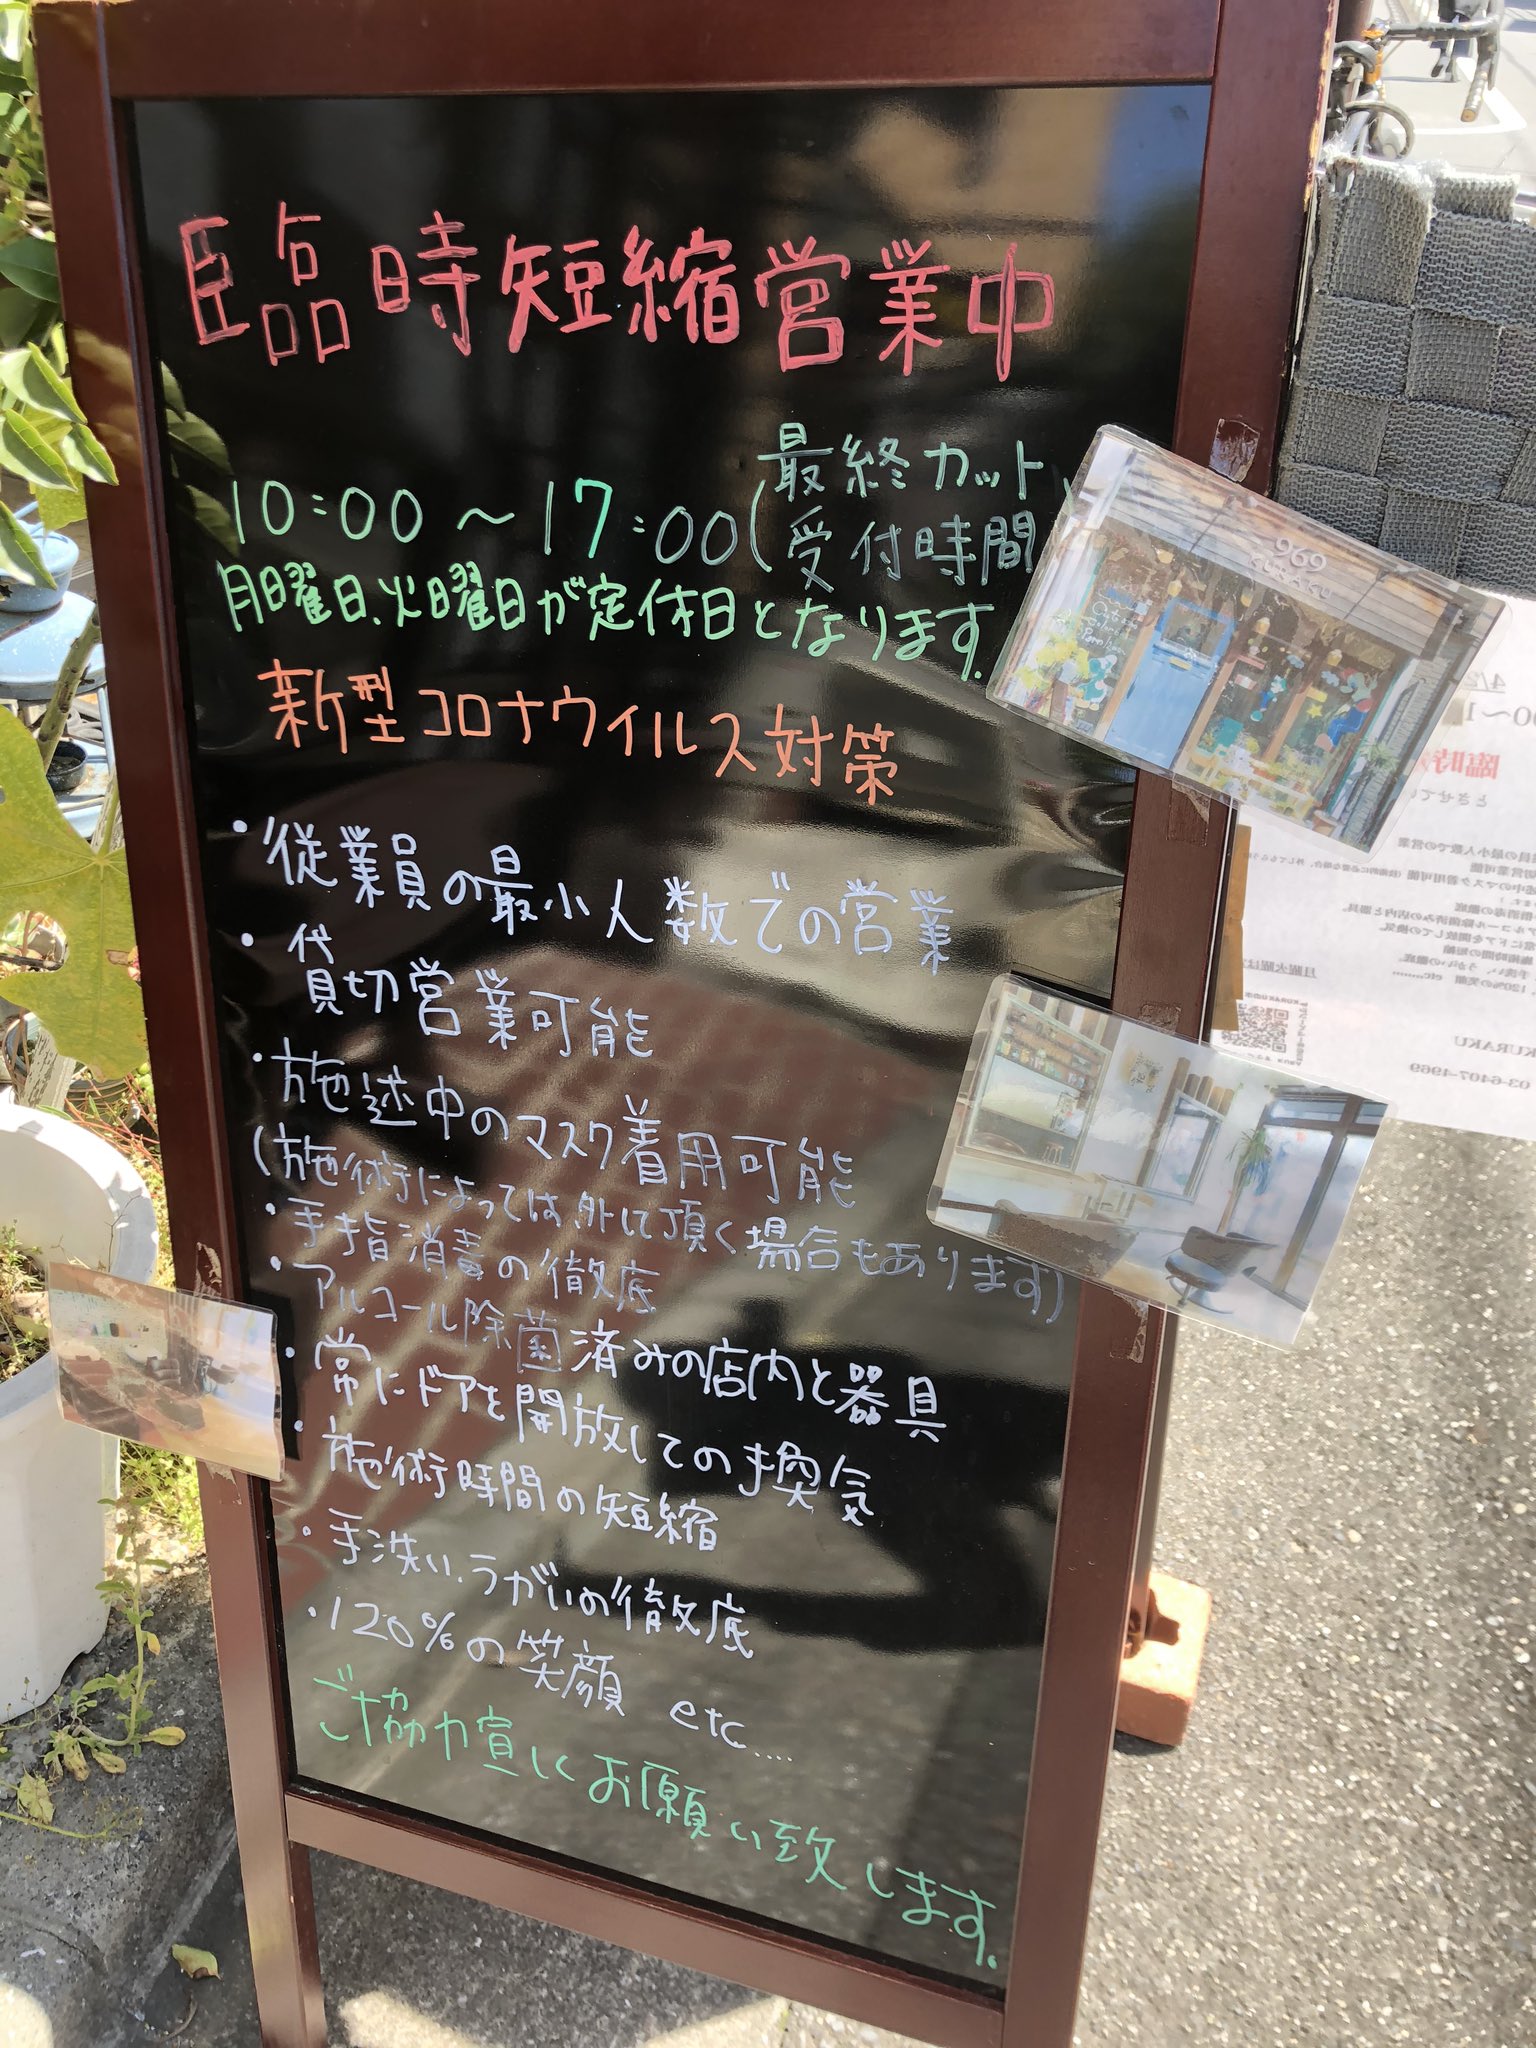 臨時短縮営業中
10:00～17:00(最終カット
受付時間
月曜日、火曜日が定休日となります。
新型コロナウイルス対策
・従業員の最小人数での営業
・貸切営業可能
・施述中のマスク着用可能
(施術によっては、外して頂く場合もあります)
・手指消毒の徹底
・アルコール除菌済みの店内と器具
・常にドアを開放しての換気
・施術時間の短縮
・手洗い、うがいの徹底
・120%の笑顔 etc....
ご協力宜しくお願い致します。
969
KURAKU
KURAKU
03-6407-4969